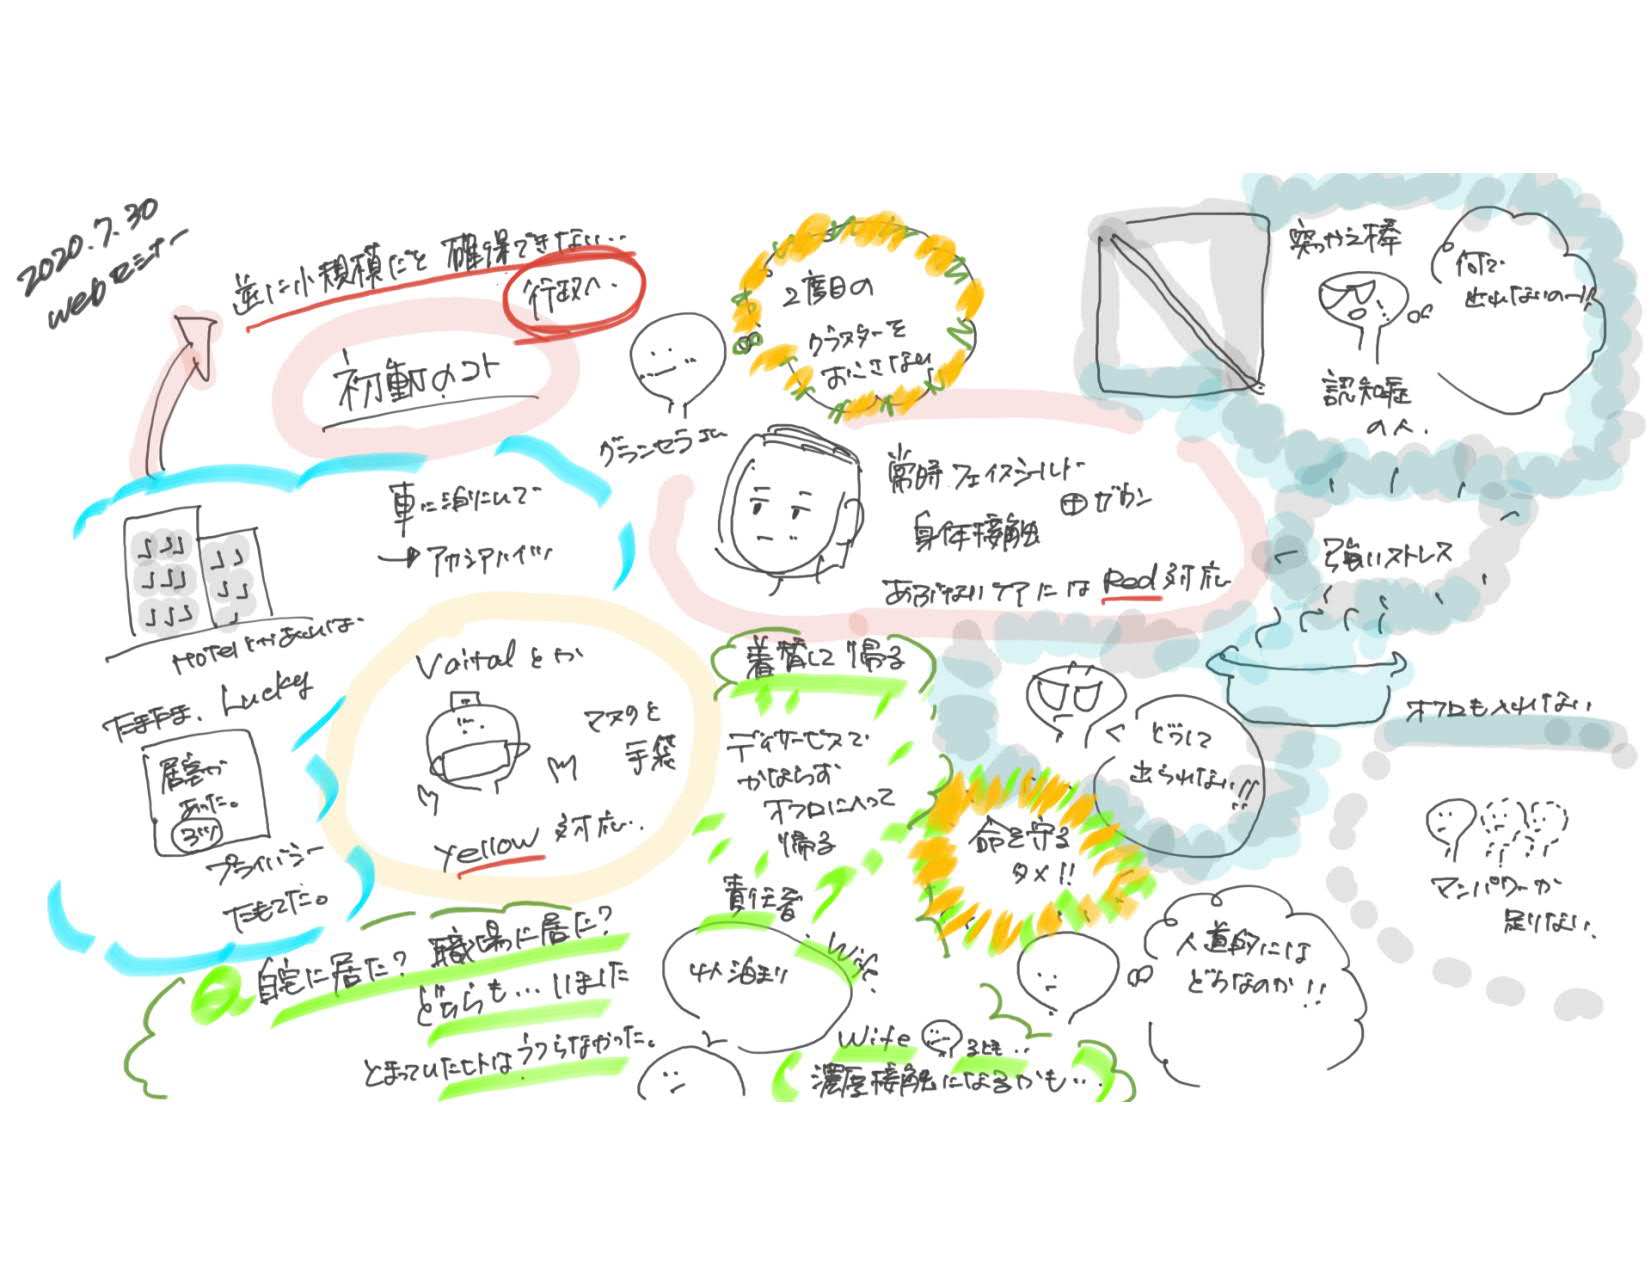 2020.7.30
webセミナー
逆に小規模だと 確保できない…
行政へ.
初動のコト
2度目の
クラスターを
おこさない
突っかえ棒
何で
出れないのー!!
認知症
の人.
グランセラ
車に泊
→アカシアハイツ
Hotelとかあれば
たまたま、Lucky
居室が
あった。
3つ
プライバシー
たもてた。
常時フェイスシールド
⊕ガウン
身体接触
あぶないケアには Red対応
強いストレス
Vaitalとか
マスクと
手袋
Yellow 対応.
着替して帰る
デイサービスで
かならず
オフロに入って
帰る
どうして
出られない!!
オフロも入れない
命を守る
タメ!!
マンパワーが
足りない.
人道的には
どうなのか!!
責任者
4人泊まり
Wife.
Q 自宅に居た? 職場に居た?
どちらも…いました
とまっていたヒトはうつらなかった。
Wife
るとも..
濃厚接触になるかも…